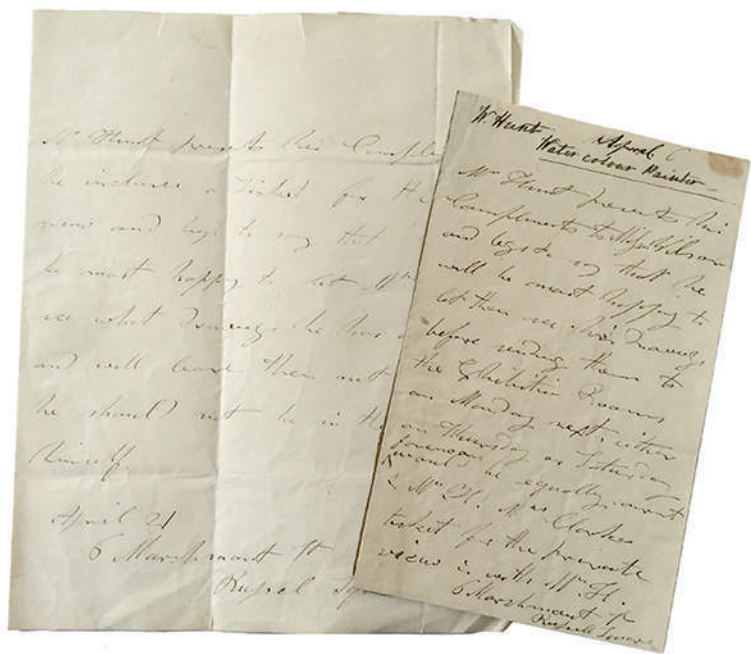 Mr Hunt presents his Compli
he incloses a Ticket for the
view and begs to say that
be most happy to let Mrs
see what Drawings he has
and will leave them out
he should not be in the
himself.
April 21
6 Marchmont St
Russel Sq
W. Hunt April
Water colour Painter
Mr Hunt presents his
Compliments to Miss
and begs to say that he
will be most happy to
let them see his Drawings
before sending them to
the Exhibition Rooms
on Monday next, either
on Thursday or Saturday
forenoon
would be equally convent
to Mr H. Mrs Clarkes
ticket for the private
view is with Mr H.
6 Marchmont St
Russell Square